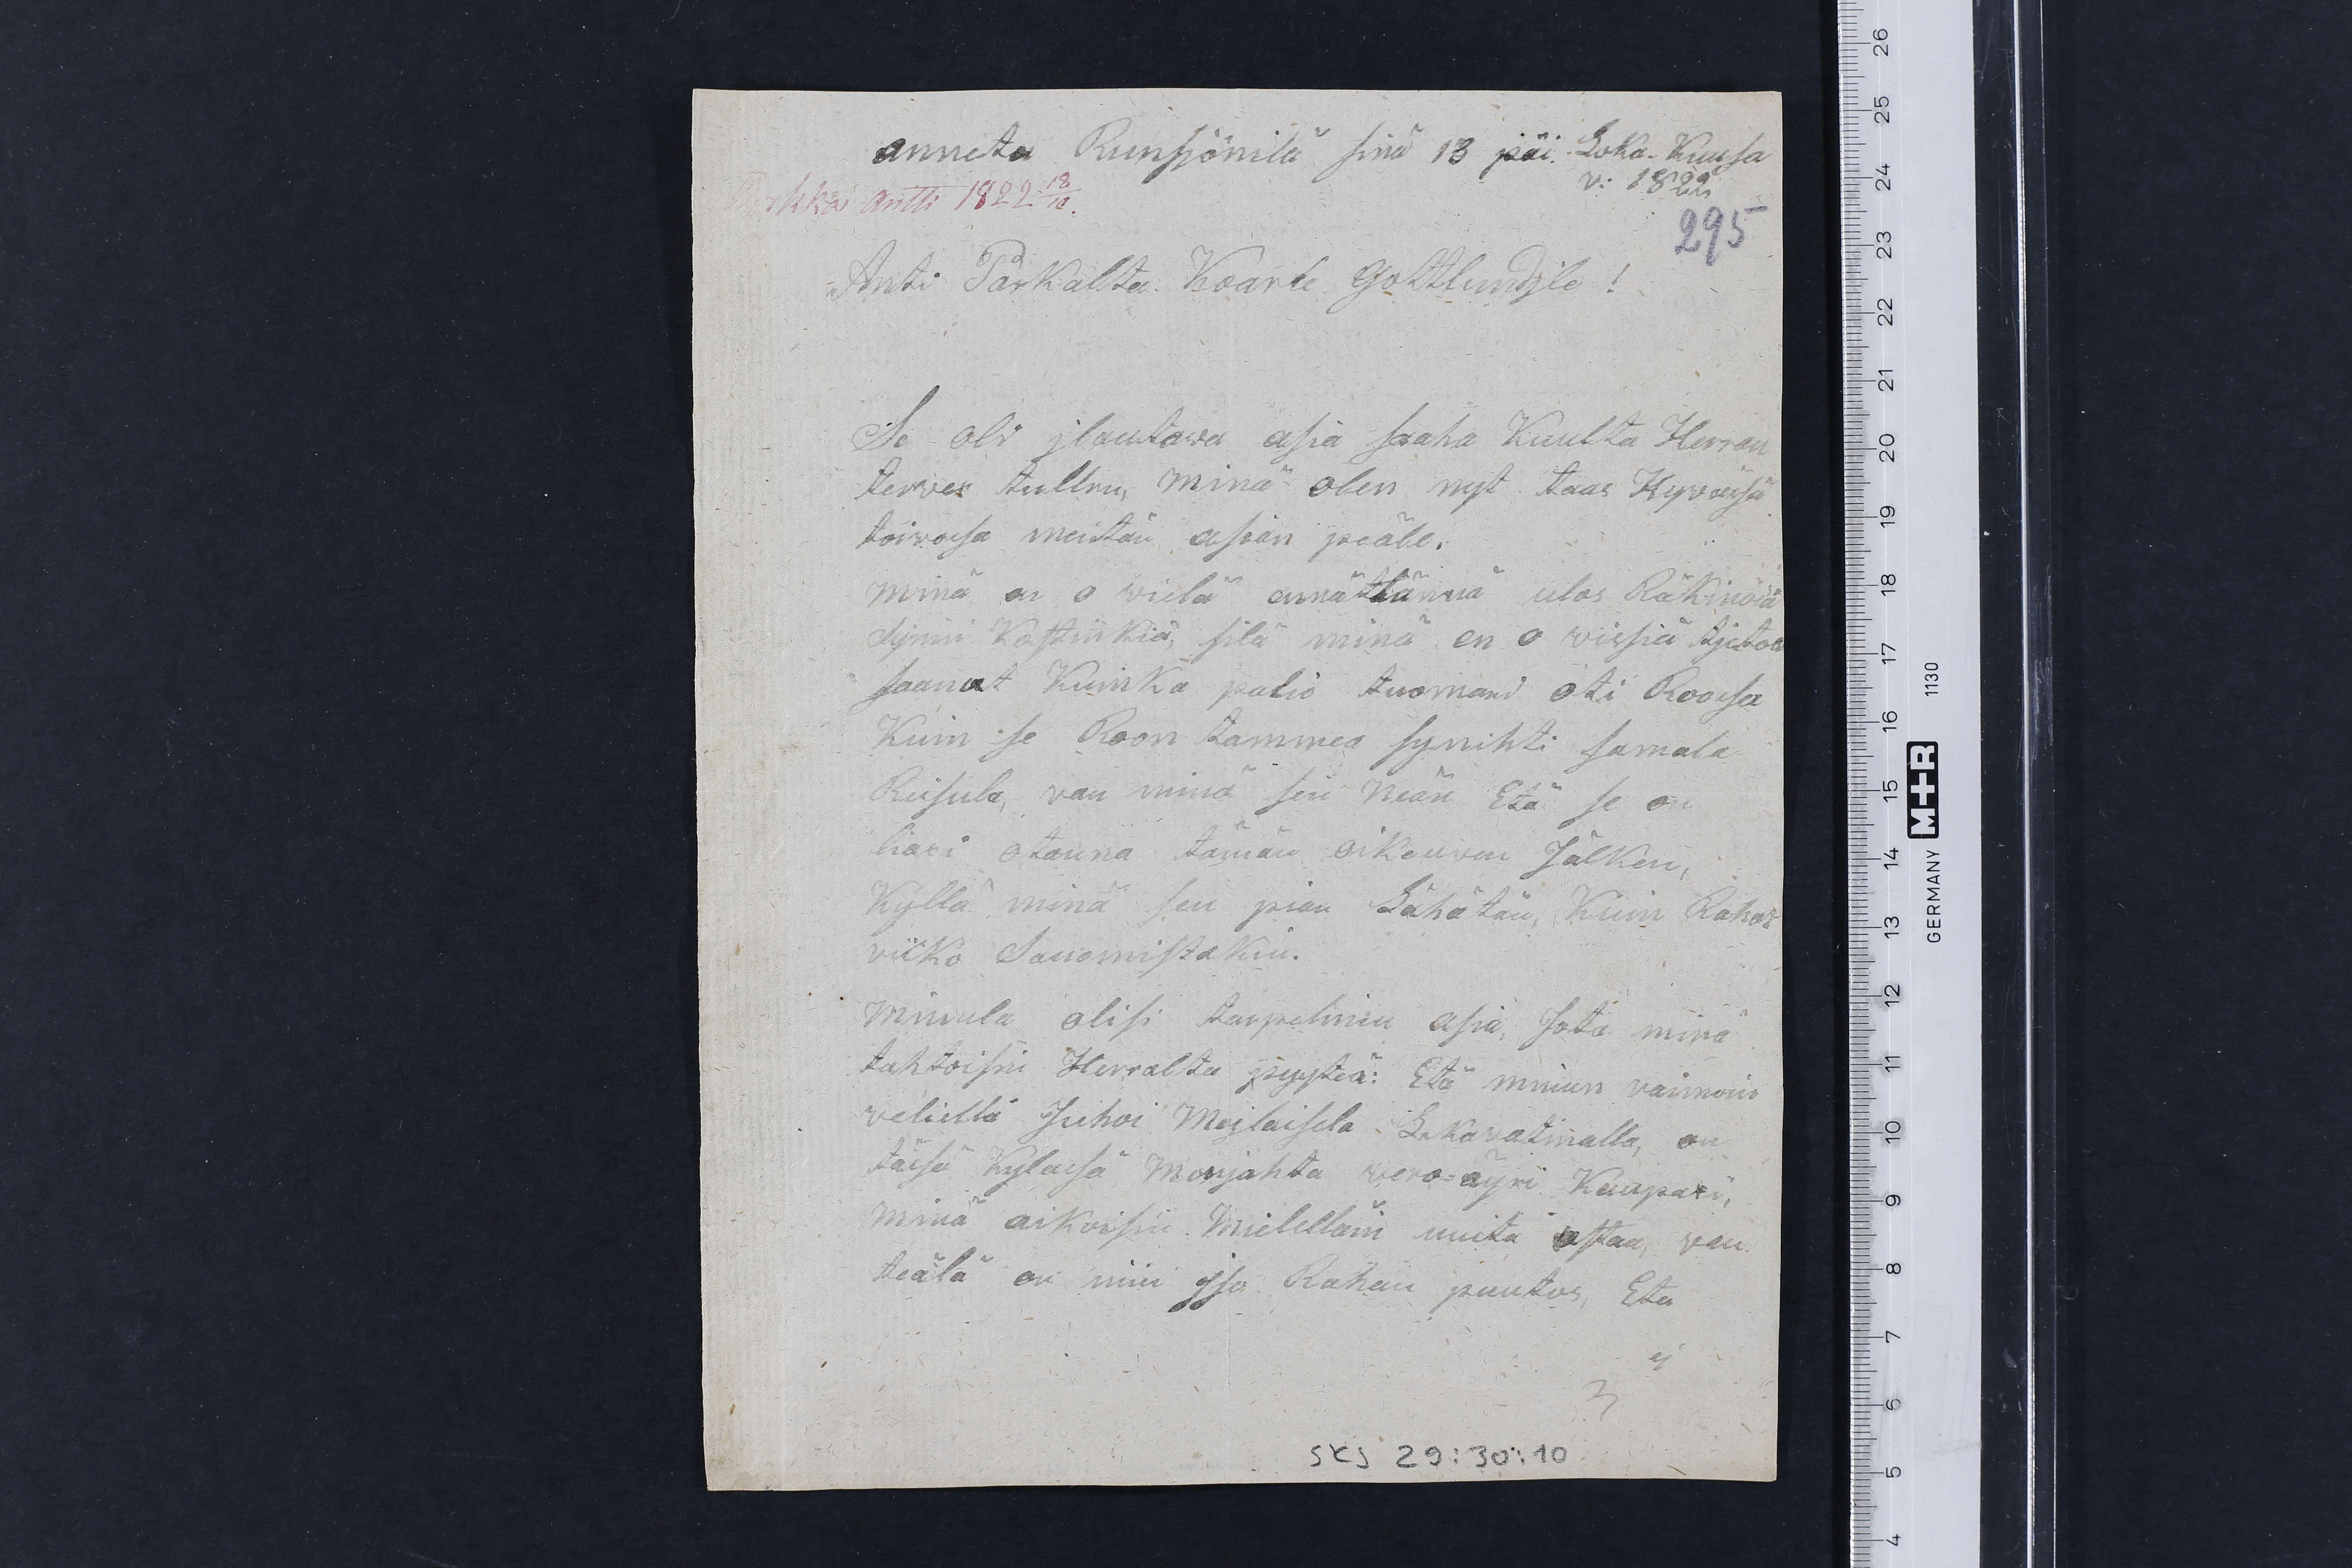 anneta Runsjönilä sinä 13 päi. Loka-Kuusa
v: 1822
antti 1822 18/10.
295
Anti Parkalta. Koarle Gottlundjle!
Se oli jlautawa asia saaha Kuulta Herran
terves tullru, minä olen nyt taas Hyväesä
toivosa meitän asian peäle.
minä en o vielä ennättännä ulos Räkinöiä
Kostinkia, silä minä en o vissiä tjetoa
saanut Kuinka palio tuomari oti Roosa
Kuin se Roon tammea synihti samala
Reisula, van minä sen Neän Etä se on
liaxi otanna tämän oikeuven Jälken,
Kyllä minä sen pian Lähätän, Kuin Rahat
viiko Sanomistakin.
Minula olisi tarpelinen asia, Jota minä
tahtoisni Herralta pyyteä: Etä minun vaimoin
veliellä Juhoi Mejlaisela Lekavatinalla, on
täesä Kylaesä Monjahta vero=äyri Kaupaxi,
minä aikoisin Mielelläin niita ostaa, van
teälä on niin jso Rahan puutos, Eta
ej
3
SKS 29:30:10
26
25
24
23
22
21
20
19
18
17
16
15
14
13
12
11
10
9
8
7
6
5
4
GERMANY M+R 1130